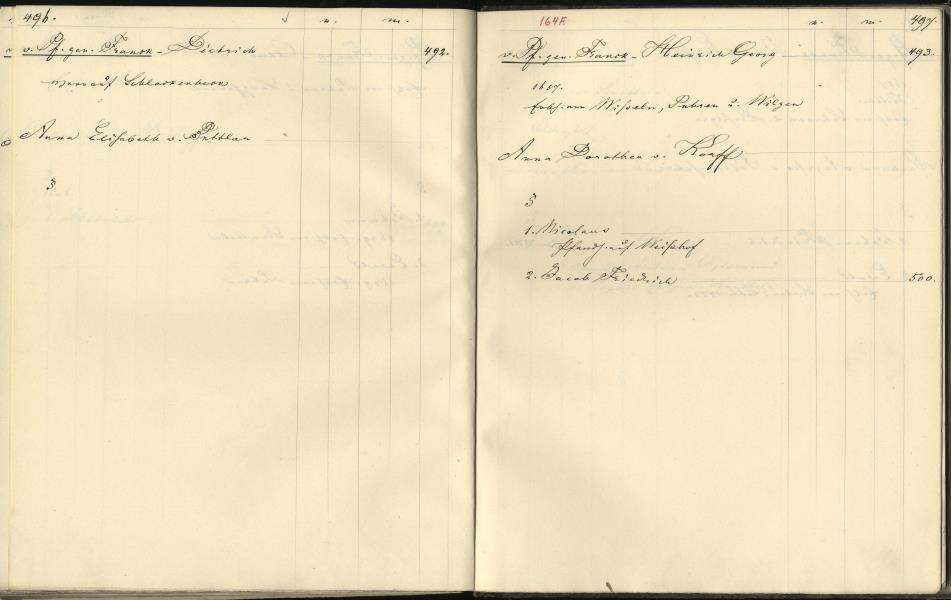 496. v. m.
v. Pf. gen. Franck - Dietrich 492.
Herr auf Schlockenbeck
Anna Elisabeth v. Puttlau
3
164F. v. m. 497.
v. Pf. gen. Franck - Heinrich Georg 493.
1657.
Erbh. von Wisseln, Puhren u. Wilgen
Anna Dorothea v. Korff
3
1. Nicolaus
Pfandh. auf Weisshof
2. Jacob Friedrich 500.